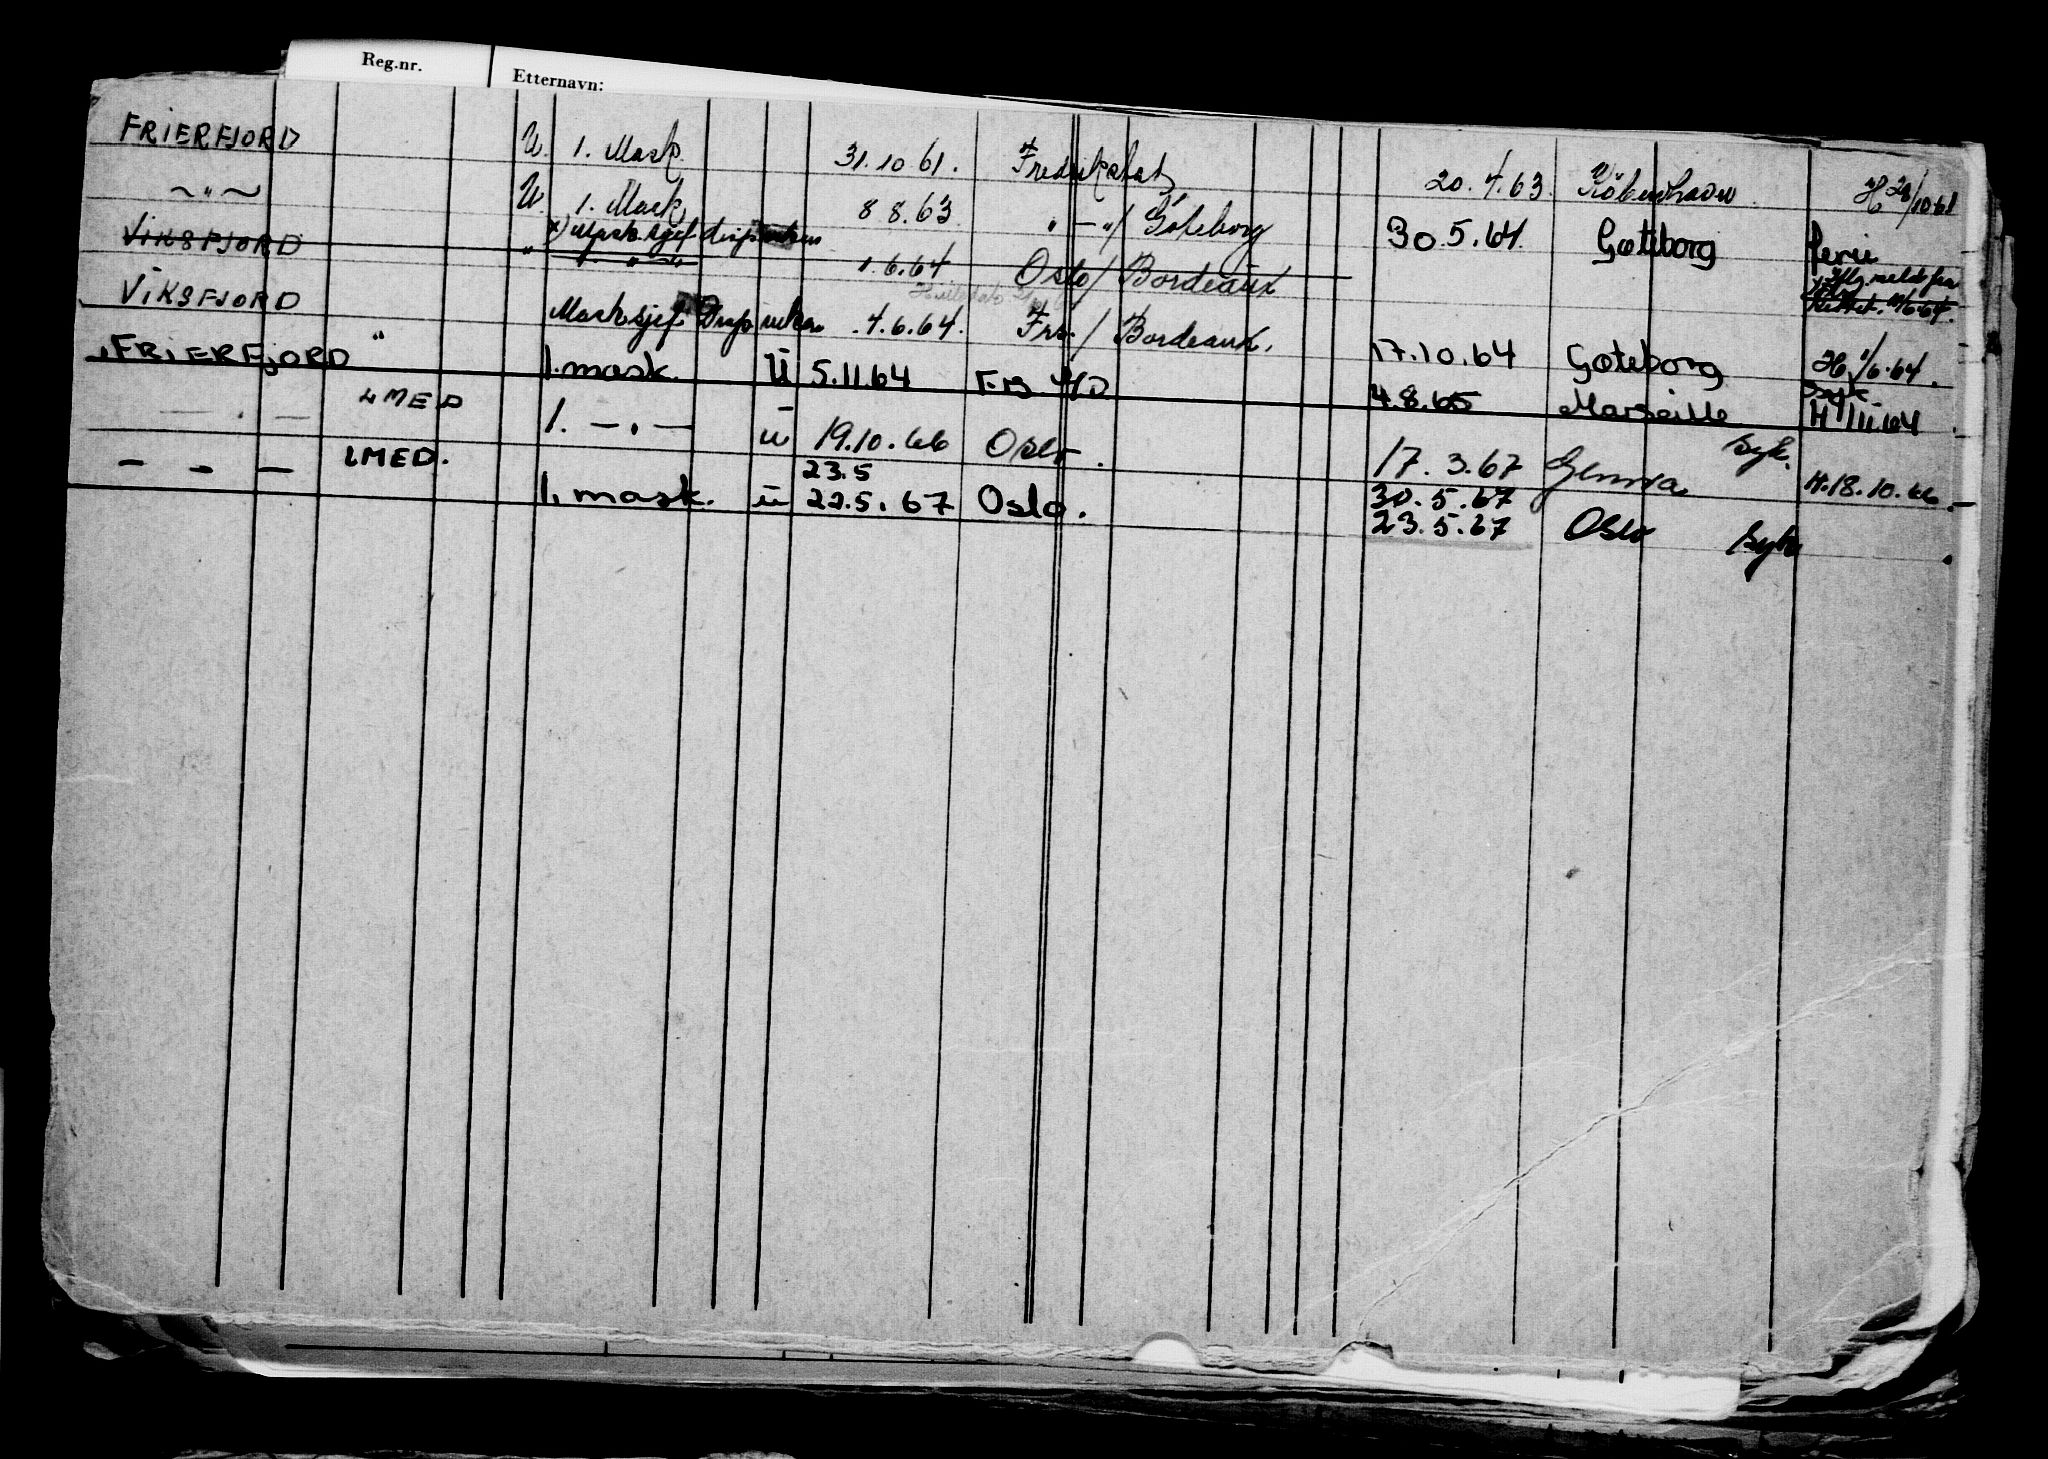 Reg.nr. Etternavn:
FRIERFJORD U. 1. Mask. 31.10 61. Fredrikstad 20.4.63. Köbenhavn H 26/10 61
～"～ U. 1. Mask 8 8.63 " — "/ Göteborg 30.5.64 Gøteborg ferie
x) Mask.sjef disp
VIKSFJORD " " " 1.6.64 Oslo / Bordeaux
VIKSFJORD Mask.sjef Disp 4.6.64. Frs. / Bordeaux. 17.10.64 Gøteborg H 1/6.64.
"
FRIERFJORD 1. mask. U 5.11.64 4.8.65 Marseille H 64
— . — LMED 1. — . — U 19.10.66 Oslo. 17.3.67 Genova syk. H.18.10.66
— — — LMED. 23.5 30.5.67
1. mask. U 22.5.67 Oslo. 23.5.67 Oslo syk